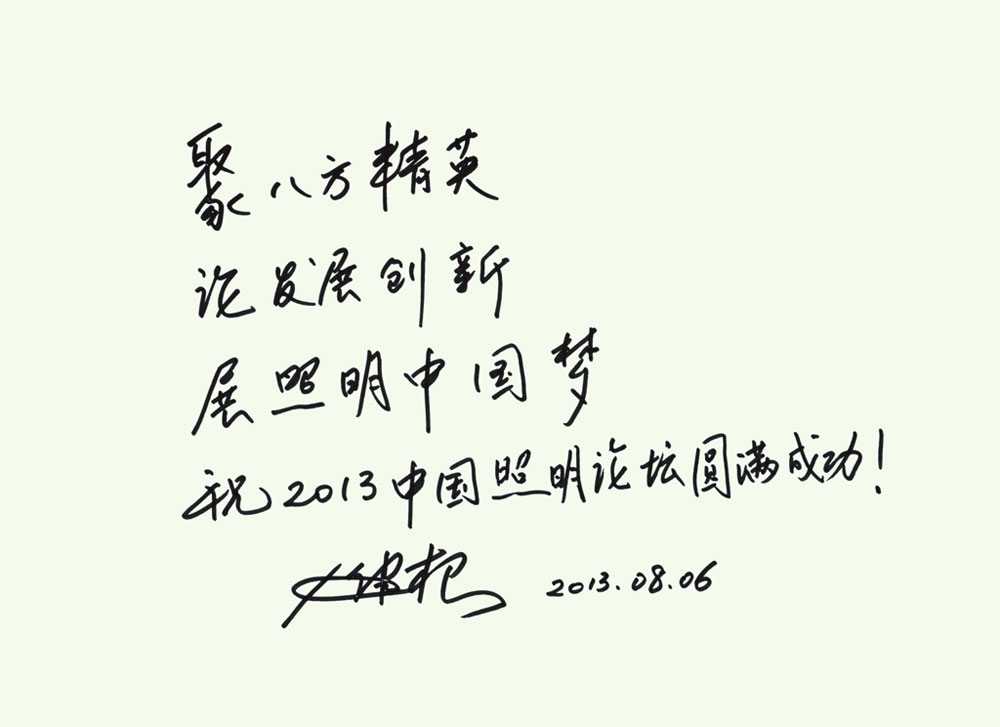 聚八方精英
论发展创新
展照明中国梦
祝2013中国照明论坛圆满成功!
2013.08.06